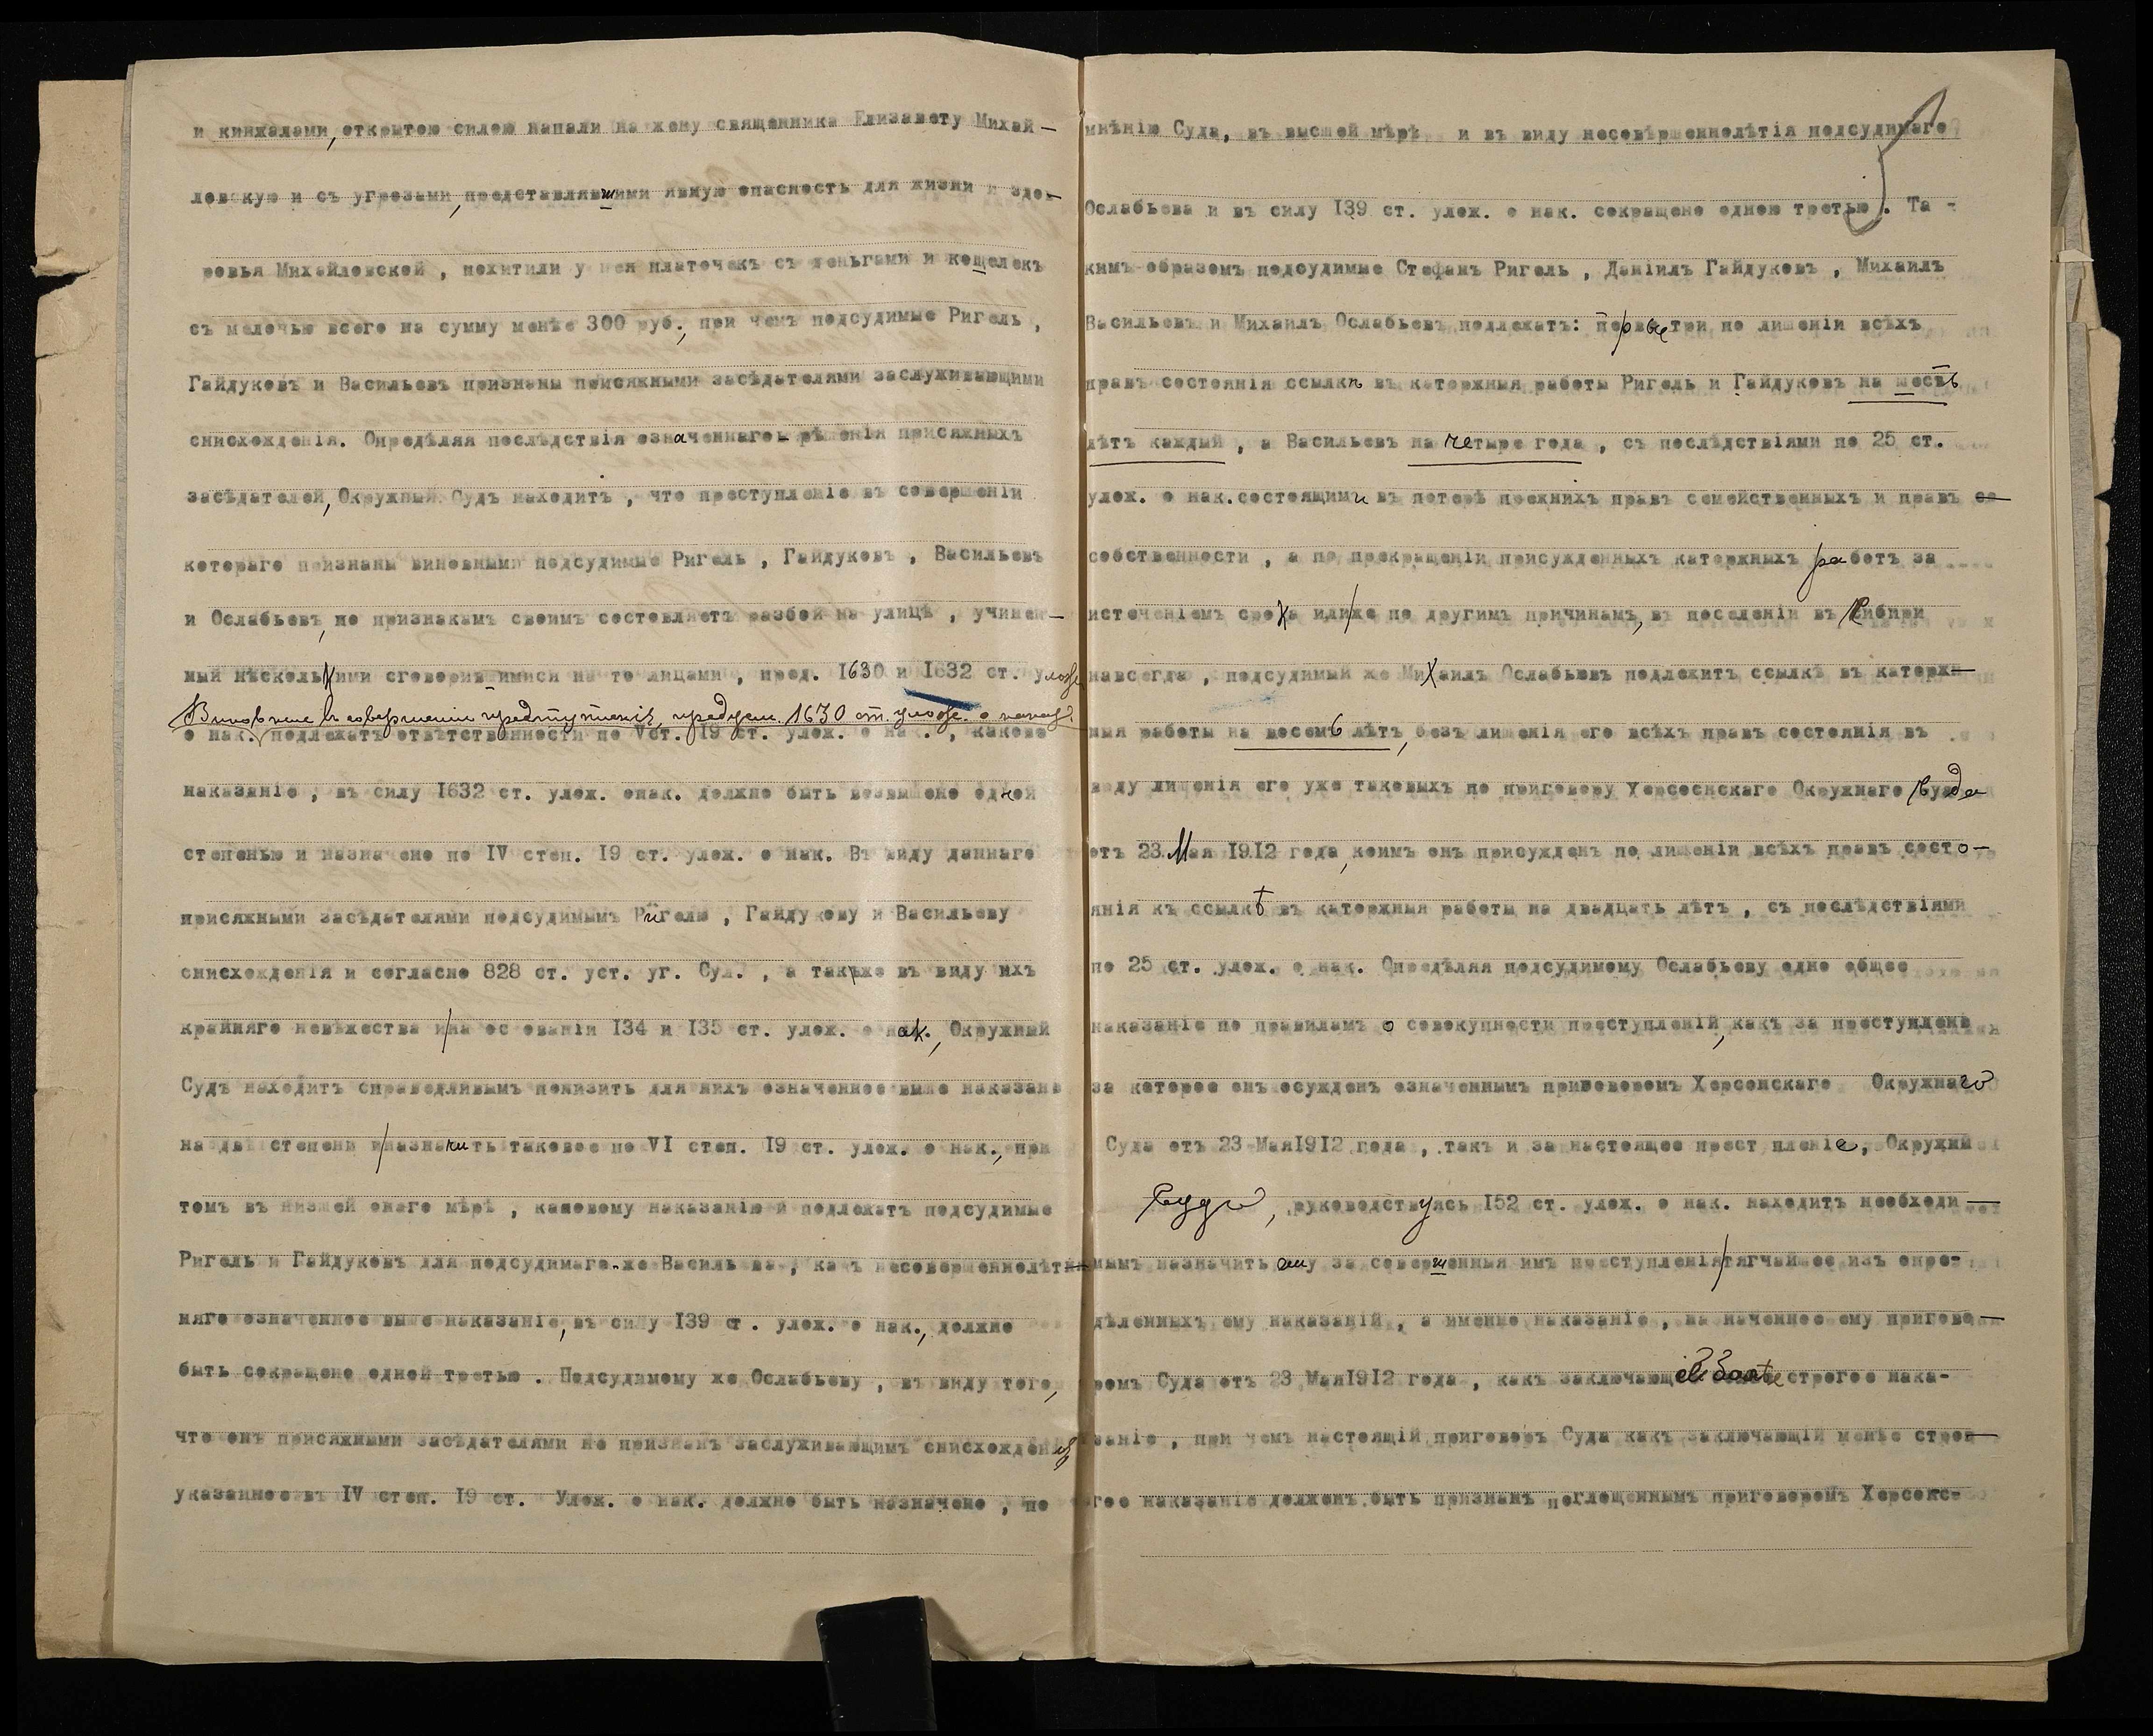 и кинжалами, открытою силою напали на жену священника Елизавету Михай-
ловскую и съ угрозами, представлявшими явную опасность для жизни и здо-
ровья Михайловской , похитили у нея платочекъ съ деньгами и кошелекъ
съ мелочью всего на сумму менѣе 300 руб., при чемъ подсудимые Ригель ,
Гайдуковъ и Васильевъ признаны присяжными засѣдателями заслуживающими
снисхожденія. Опредѣляя послѣдствія означеннаго рѣшенія присяжныхъ
засѣдателей, Окружный Судъ находитъ , что преступленіе въ совершеніи
котораго признаны виновными подсудимые Ригель , Гайдуковъ , Васильевъ
и Ослабьевъ, по признакамъ своимъ составляетъ разбой на улицѣ , учинен-
ный нѣсколькими сговорившимися на то лицами , пред. 1630 и 1632 ст. улож.
Виновные въ совершеніи преступленія, предусм. 1630 ст. улож. о наказ.
о нак. подлежатъ отвѣтственности по V ст. 19 ст. улож. о нак. , каковое
наказаніе , въ силу 1632 ст. улож. онак. должно быть возвышено одной
степенью и назначено по IV степ. 19 ст. улож. о нак. Въ виду даннаго
присяжными засѣдателями подсудимымъ Ригелю , Гайдукову и Васильеву
снисхожденія и согласно 828 ст. уст. уг. Суд. , а также въ виду ихъ
крайняго невѣжества и/на основаніи 134 и 135 ст. улож. о нак., Окружный
Судъ находитъ справедливымъ понизить для нихъ означенное выше наказане
на двѣ степени и/назначить таковое по VI степ. 19 ст. улож. о нак., при
томъ въ низшей онаго мѣрѣ , каковому наказанію и подлежатъ подсудимые
Ригель и Гайдуковъ для подсудимаго-же Васильева , какъ несовершеннолѣт-
няго означенное выше наказаніе, въ силу 139 ст . улож. о нак., должно
быть сокращено одной третью . Подсудимому же Ослабьеву , въ виду того,
что онъ присяжными засѣдателями не признанъ заслуживающимъ снисхожденія
указанное въ IV степ. 19 ст. Улож. о нак. должно быть назначено , по
мнѣнію Суда, въ высшей мѣрѣ и въ виду несовершеннолѣтія подсудимаго
5
Ослабьева и въ силу 139 ст. улож. о нак. сокращено одною третью . Та -
кимъ образомъ подсудимые Стефанъ Ригель , Даніилъ Гайдуковъ , Михаилъ
Васильевъ и Михаилъ Ослабьевъ подлежатъ: первые три по лишеніи всѣхъ
правъ состоянія ссылкѣ въ каторжныя работы Ригель и Гайдуковъ на шесть
лѣтъ каждый , а Васильевъ на четыре года , съ послѣдствіями по 25 ст.
улож. о нак. состоящими въ потерѣ прежнихъ правъ семейственныхъ и правъ со
собственности , а по прекращеніи присужденныхъ каторжныхъ работъ за
истеченіемъ срока или/же по другимъ причинамъ, въ поселеніи въ Сибири
навсегда , подсудимый же Михаилъ Ослабьевъ подлежитъ ссылкѣ въ каторж-
ныя работы на восемь лѣтъ, безъ лишенія его всѣхъ правъ состоянія въ
виду лишенія его уже таковыхъ по приговору Херсонскаго Окружнаго Суда
отъ 23 Мая 1912 года, коимъ онъ присужденъ по лишеніи всѣхъ правъ состо-
янія къ ссылкѣ въ каторжныя работы на двадцать лѣтъ , съ послѣдствіями
по 25 ст. улож. о нак. Опредѣляя подсудимому Ослабьеву одно общее
наказаніе по правиламъ о совокупности преступленій, какъ за преступлене
за которое онъ осужденъ означеннымъ приговоромъ Херсонскаго Окружнаго
Суда отъ 23 Мая1912 года , такъ и за настоящее преступленіе, Окружный
Судъ, руководствуясь 152 ст. улож. о нак. находитъ необходи-
мымъ назначить ему за совершенныя имъ преступленія/тягчайшее изъ опре-
дѣленныхъ ему наказаній , а именно наказаніе , назначенное ему пригово-
ромъ Суда отъ 23 Мая1912 года , какъ заключающій болѣе строгое нака-
заніе , при чемъ настоящій приговоръ Суда какъ заключающій менѣе стро-
гое наказаніе долженъ быть признанъ поглощеннымъ приговоромъ Херсонс-